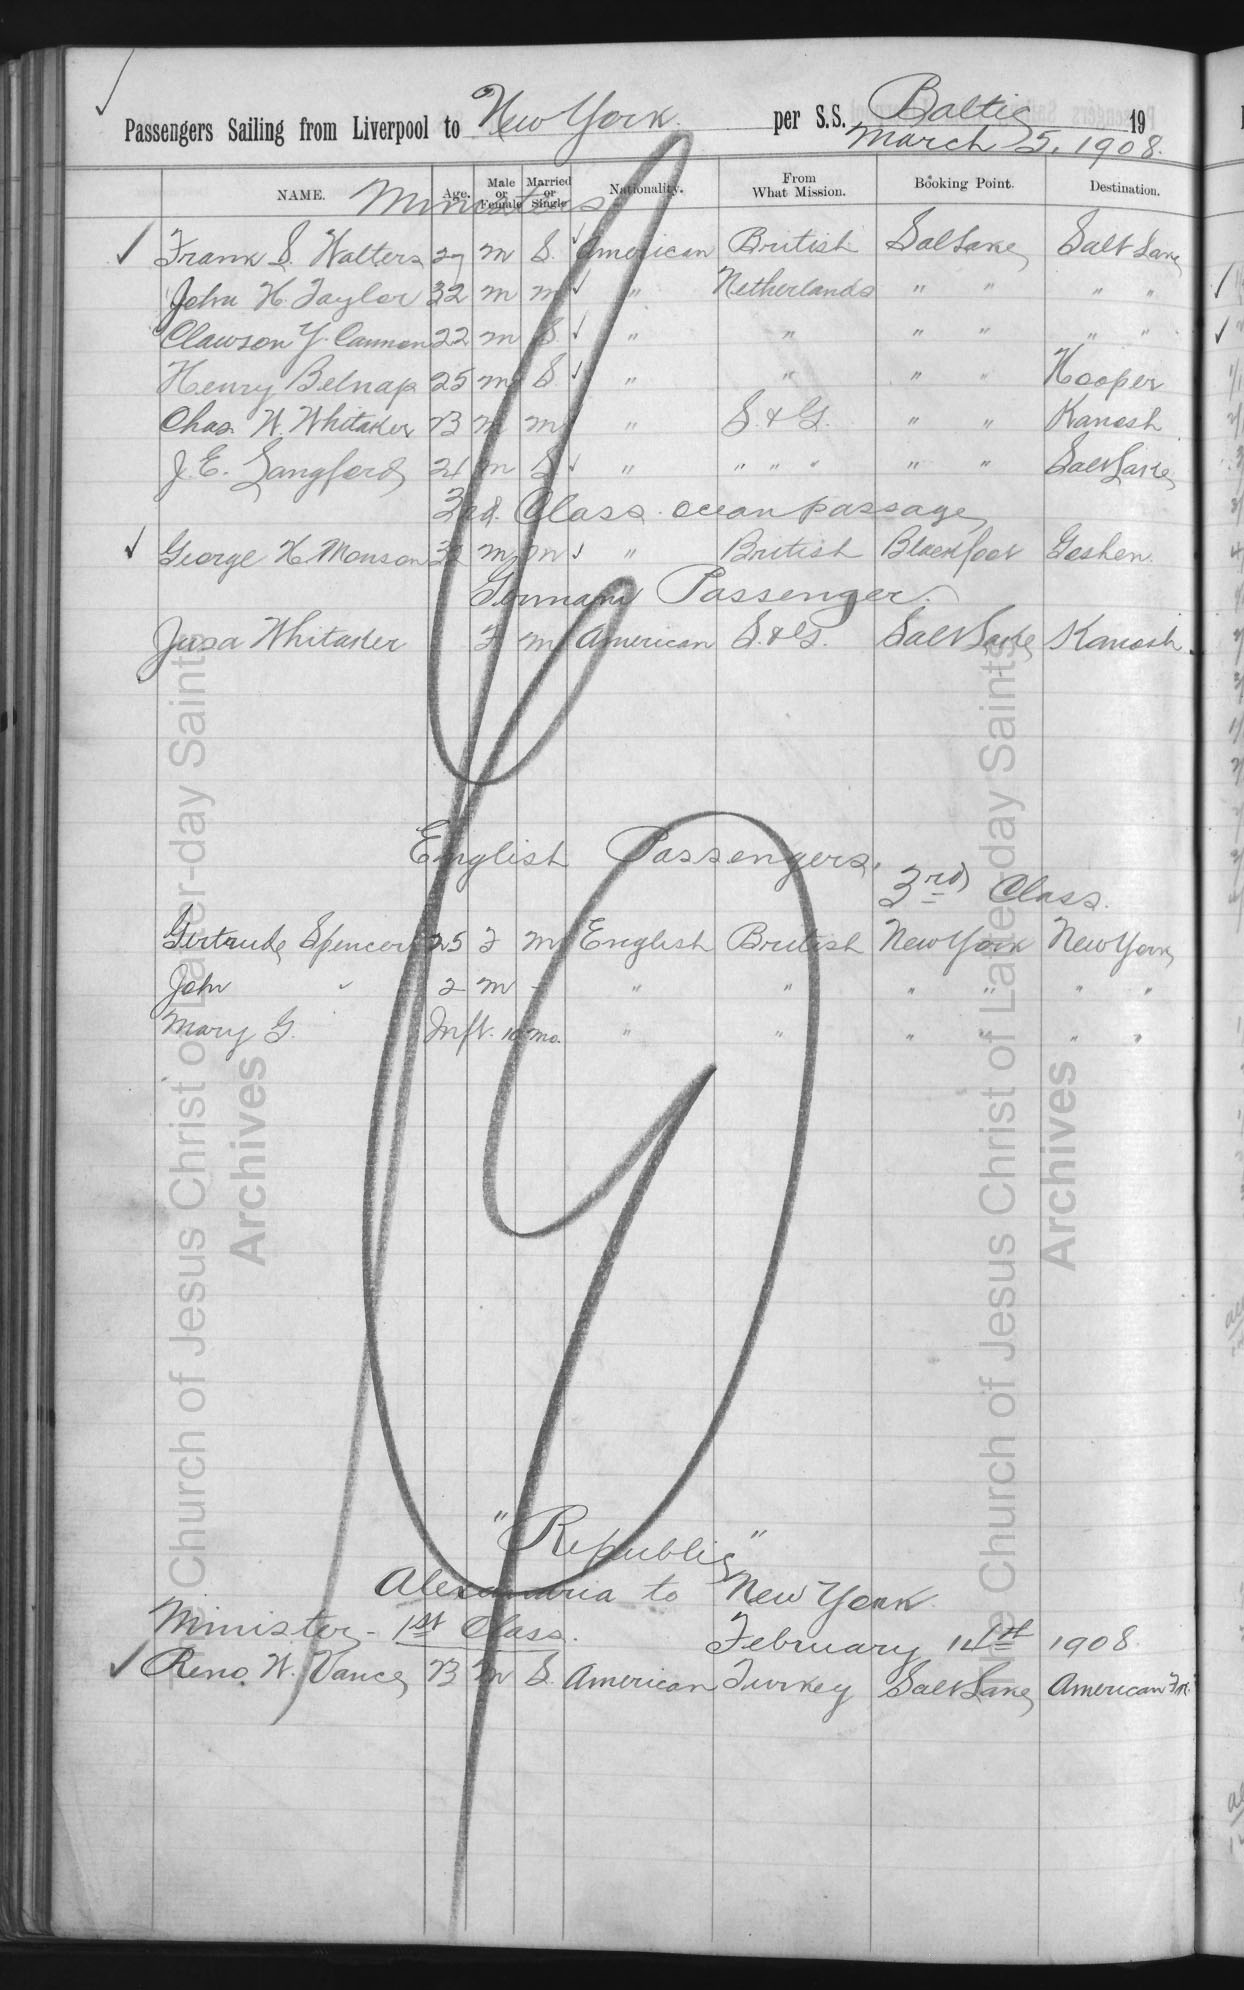 Passengers Sailing from Liverpool to New York. per S.S. Baltic 19
March 5, 1908.
NAME. Age. Male or Female Married or Single Nationality. From What Mission. Booking Point. Destination.
Ministers
Frank S. Walters 29 m S. American British Salt Lake Salt Lake
John H. Taylor 32 m m " Netherlands " " " "
Clawson Y. Cannon 22 m S. " " " " " "
Henry Belnap 25 m S " " " " Hooper
Chas. W. Whitaker m m " S. & G. " " Kanosh
J. E. Langford 21 m S " " " " " " Salt Lake
3rd. Class ocean passage
George H. Monson 32 m m " British Blackfoot Goshen.
German Passenger.
Whitaker F m American S. & G. Salt Lake Kanosh.
English Passengers.
3rd Class.
Gertrude Spencer 25 F m English British New York New York
John " 2 m - " " " " " "
Mary G. Inft. 10 mo. " " " " " "
"Republic"
Alexandria to New York.
Minister - 1st Class. February 14th 1908.
Reno W. Vance m S. American Turkey Salt Lake American Fk.
The Church of Jesus Christ of Latter-day Saints
Archives
The Church of Jesus Christ of Latter-day Saints
Archives